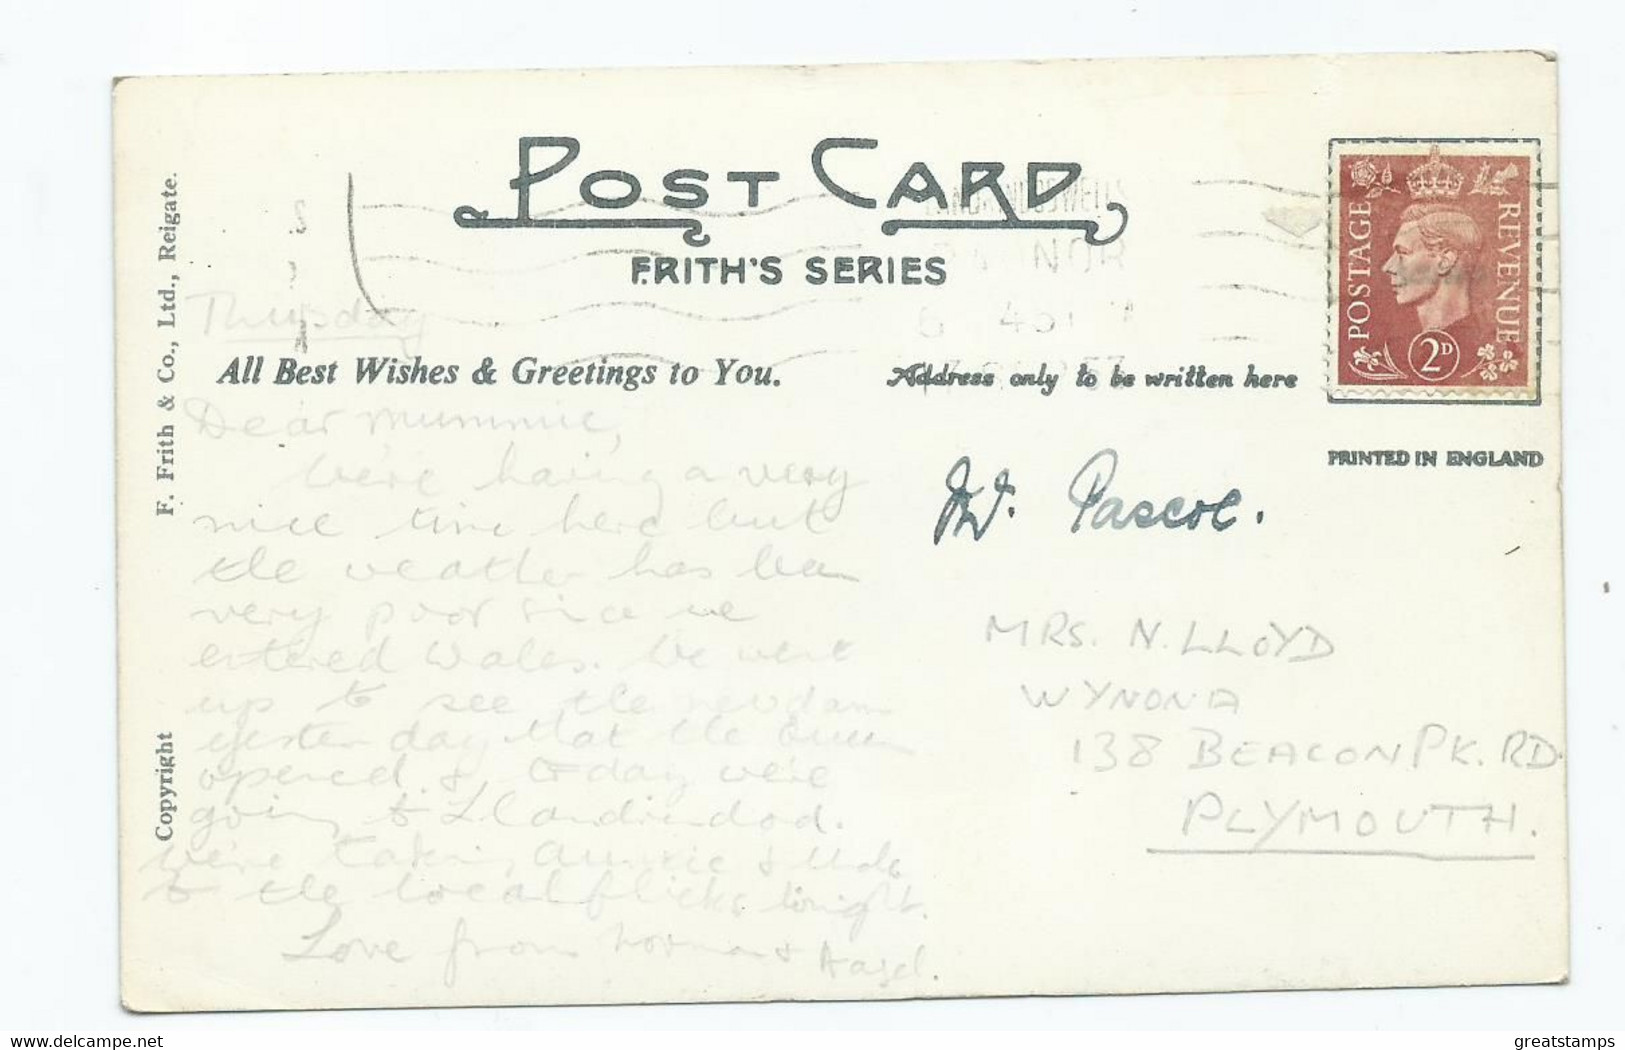 POST CARD
FRITH'S SERIES
F. Frith & Co., Ltd., Reigate.
Copyright
LLANDRINDOD WELLS
POSTAGE
REVENUE
2D
PRINTED IN ENGLAND
All Best Wishes & Greetings to You.
Address only to be written here
Thursday
Dear Mummie,
We're having a very
nice time here but
the weather has been
very poor since we
entered Wales. We went
up to see the new dam
yesterday that the Queen
opened. & today we're
going to Llandrindod.
We're taking Auntie & Uncle
to the local flicks tonight.
Love from Norman & Hazel.
Pascoe.
MRS. N. LLOYD
WYNONA
138 BEACON PK. RD.
PLYMOUTH.
delcampe.net
greatstamps